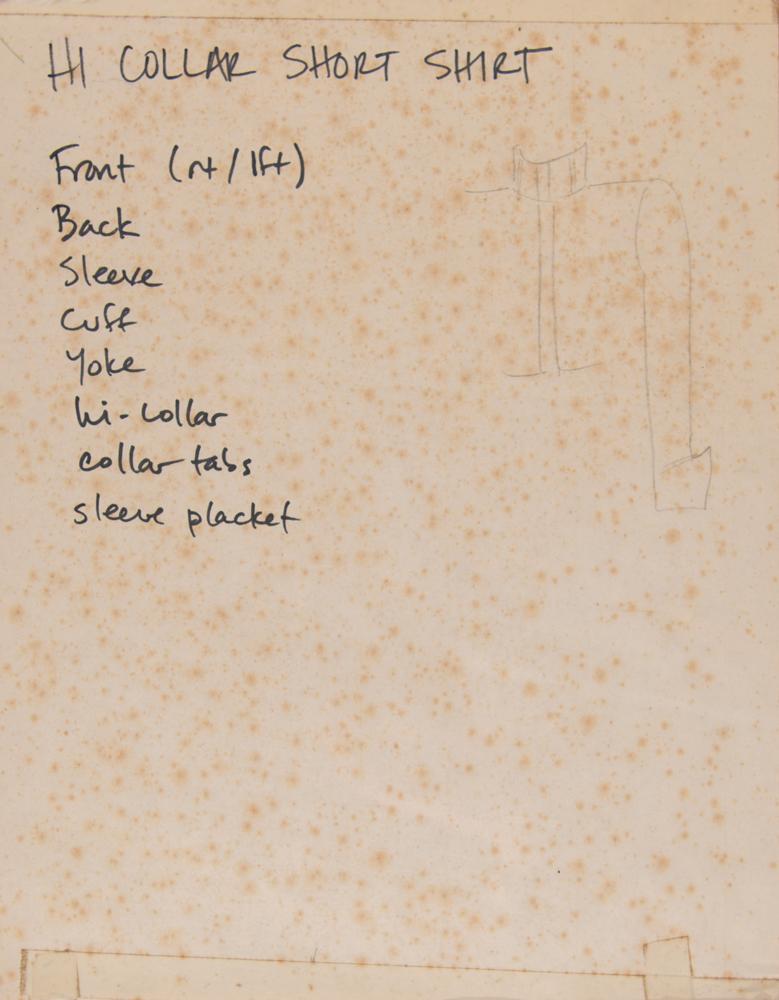 HI COLLAR SHORT SHIRT
Front (rt/lft)
Back
Sleeve
Cuff
Yoke
hi-collar
collar tabs
sleeve placket